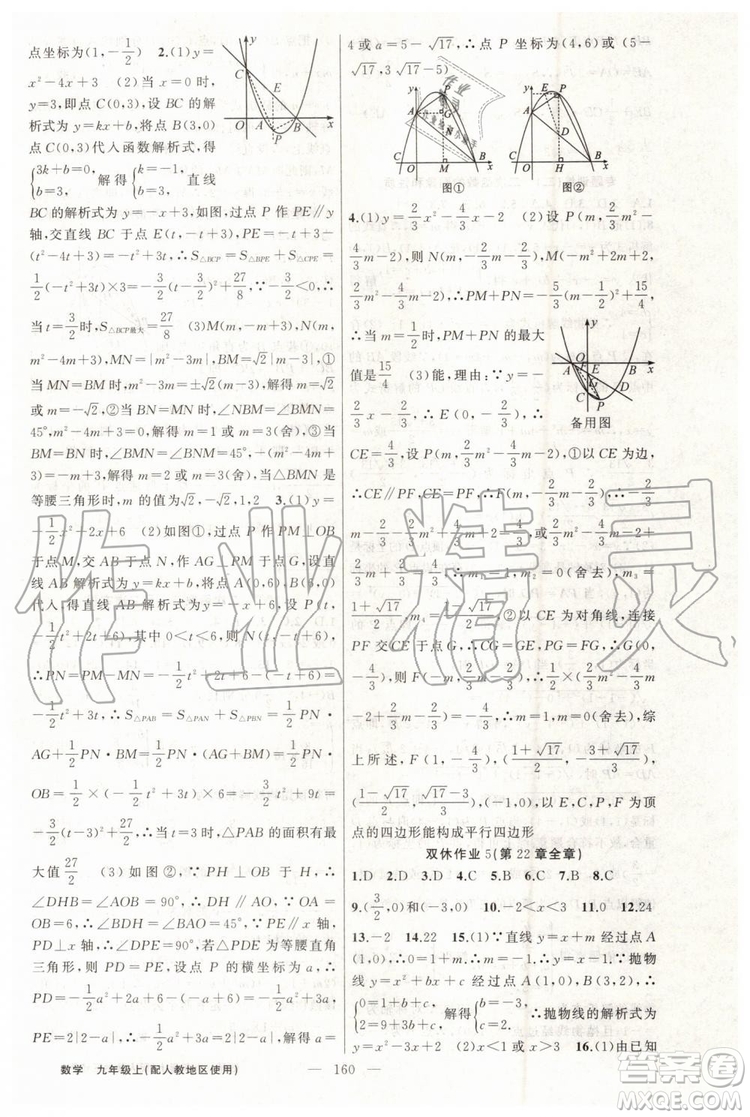 点坐标为(1,-1/2) 2.(1)y=
x²-4x+3 (2)当 x=0 时,
y=3,即点 C(0,3),设 BC 的解
析式为 y=kx+b,将点 B(3,0)
点 C(0,3)代入函数解析式,得
{3k+b=0, b=3, 解得 {k=-1, b=3, 直线
BC 的解析式为 y=-x+3,如图,过点 P 作 PE∥y
轴,交直线 BC 于点 E(t,-t+3),PE=-t+3-
(t²-4t+3)=-t²+3t,∴S△BCP=S△BPE+S△CPE=
1/2(-t²+3t)×3=-3/2(t-3/2)²+27/8,∵-3/2<0,
∴当 t=3/2 时,S△BCP最大=27/8 (3)M(m,-m+3),N(m,
m²-4m+3),MN=|m²-3m|,BM=√2|m-3|,①
当 MN=BM 时,m²-3m=±√2(m-3),解得 m=
√2 或 m=-√2,②当 BN=MN 时,∠NBM=∠BMN=
45°,m²-4m+3=0,解得 m=1 或 m=3(舍),③当
BM=BN 时,∠BMN=∠BNM=45°,-(m²-4m+
3)=-m+3,解得 m=2 或 m=3(舍),当△BMN 是
等腰三角形时,m 的值为√2,-√2,1,2 3.(1)y=
-1/2x²+2x+6 (2)如图①,过点 P 作 PM⊥OB
于点 M,交 AB 于点 N,作 AG⊥PM 于点 G,设直线
AB 解析式为 y=kx+b,将点 A(0,6),B(6,0)
代入,得直线 AB 解析式为 y=-x+6,设 P(t,-1/2t²
+2t+6),其中 0<t<6,则 N(t,-t+6),
∴PN=PM-MN=-1/2t²+2t+6-(-t+6)=
-1/2t²+3t,∴S△PAB=S△PAN+S△PBN=1/2PN·
AG+1/2PN·BM=1/2PN·(AG+BM)=1/2PN·
OB=1/2×(-1/2t²+3t)×6=-3/2t²+9t=
-3/2(t-3)²+27/2,∴当 t=3 时,△PAB 的面积有最
大值27/2 (3)如图②,∵PH⊥OB 于 H,∴
∠DHB=∠AOB=90°,∴DH∥AO,∵OA=
OB=6,∴∠BDH=∠BAO=45°,∵PE∥x
轴,PD⊥x 轴,∴∠DPE=90°,若△PDE 为等腰
直角三角形,则 PD=PE,设点 P 的横坐标为 a,∴
PD=-1/2a²+2a+6-(-a+6)=-1/2a²+3a,
PE=2|2-a|,∴-1/2a²+3a=2|2-a|,解得 a=
4 或 a=5-√17,∴点 P 坐标为(4,6)或(5-
√17,3√17-5)
图① 图②
4.(1)y=2/3x²-4/3x-2 (2)设 P(m,2/3m²-
4/3m-2),则 N(m,-2/3m-2/3),M(-m²+2m+
2,2/3m²-4/3m-2),∴PM+PN=-5/3(m-1/2)²+15/4,
∴当 m=1/2时,PM+PN 的最大
值是15/4 (3)能,理由:∵y=-
2/3x-2/3,∴E(0,-2/3),∴
备用图
CE=4/3,设 P(m,2/3m²-4/3m-2),①以 CE 为边,
∴CE∥PF,CE=PF,∴F(m,-2/3m-2/3),∴-2/3
m-2/3-2/3m²+4/3m+2=4/3或2/3m²-4/3m-2+
2/3m+2/3=4/3,∴m₁=1,m₂=0(舍去),m₃=
(1+√17)/2,m₄=(1-√17)/2,②以 CE 为对角线,连接
PF 交 CE 于点 G,∴CG=GE,PG=FG,∴G(0,
-4/3),∴F(-m,2/3m-2/3),∴1/2×(2/3m²-4/3m-
2+2/3m-2/3)=-4/3,∴m=1,m=0(舍去),综
上所述,F(1,-4/3),((1+√17)/2,-(3+√17)/3),
((1-√17)/2,(√17-3)/3),(-1,0),以 C,E,P,F 为顶
点的四边形能构成平行四边形
双休作业 5(第 22 章全章)
1.D 2.D 3.C 4.D 5.B 6.C 7.B 8.C
9.(3/2,0)和(-3,0) 10.-2<x<3 11.0 12.24
13.-2 14.22 15.(1)∵直线 y=x+m 经过点 A
(1,0),∴0=1+m,∴m=-1,∵抛物线 y=
x²+bx+c 经过点 A(1,0),B(3,2),∴
{0=1+b+c, 2=9+3b+c, 解得 {b=-3, c=2, ∴抛物线的解析式为
y=x²-3x+2 (2)x<1 或 x>3 16.(1)由已知
数学 九年级上(配人教地区使用) — 160 —
作业精灵
答案圈